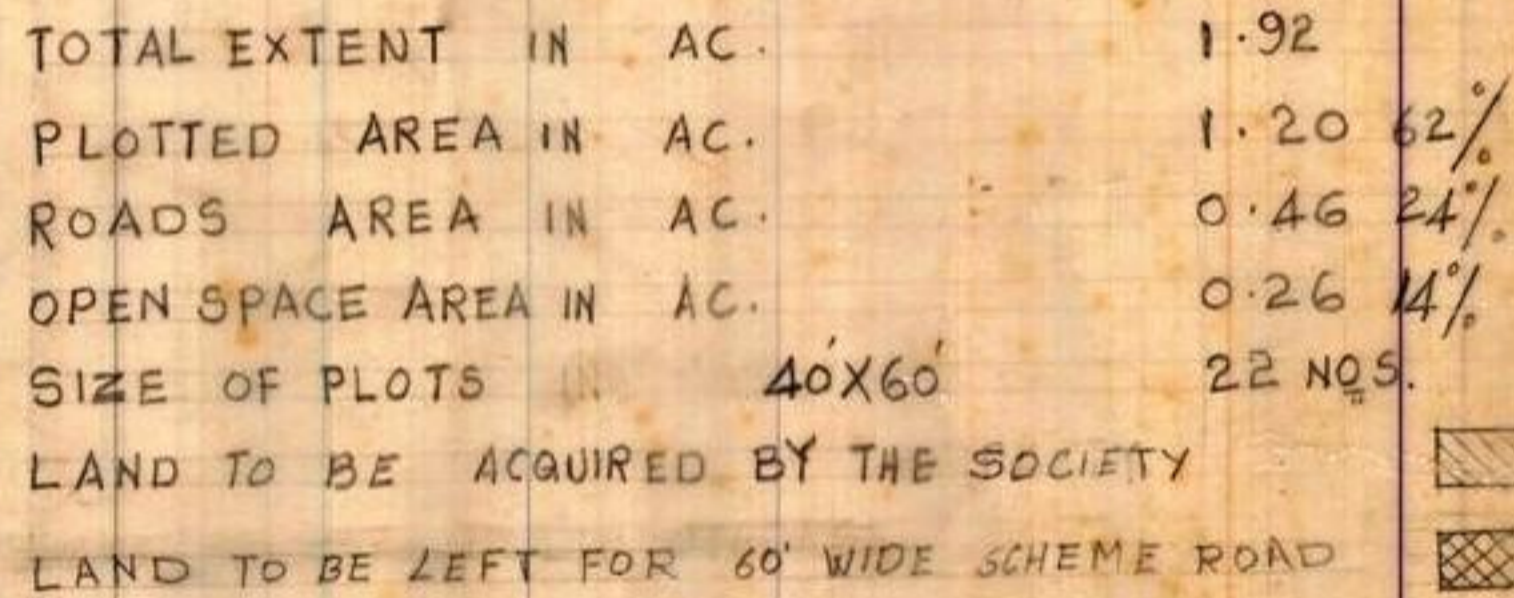 TOTAL EXTENT IN AC. 1.92
PLOTTED AREA IN AC. 1.20 62%
ROADS AREA IN AC. 0.46 24%
OPEN SPACE AREA IN AC. 0.26 14%
SIZE OF PLOTS 40'X60' 22 NOS.
LAND TO BE ACQUIRED BY THE SOCIETY
LAND TO BE LEFT FOR 60' WIDE SCHEME ROAD